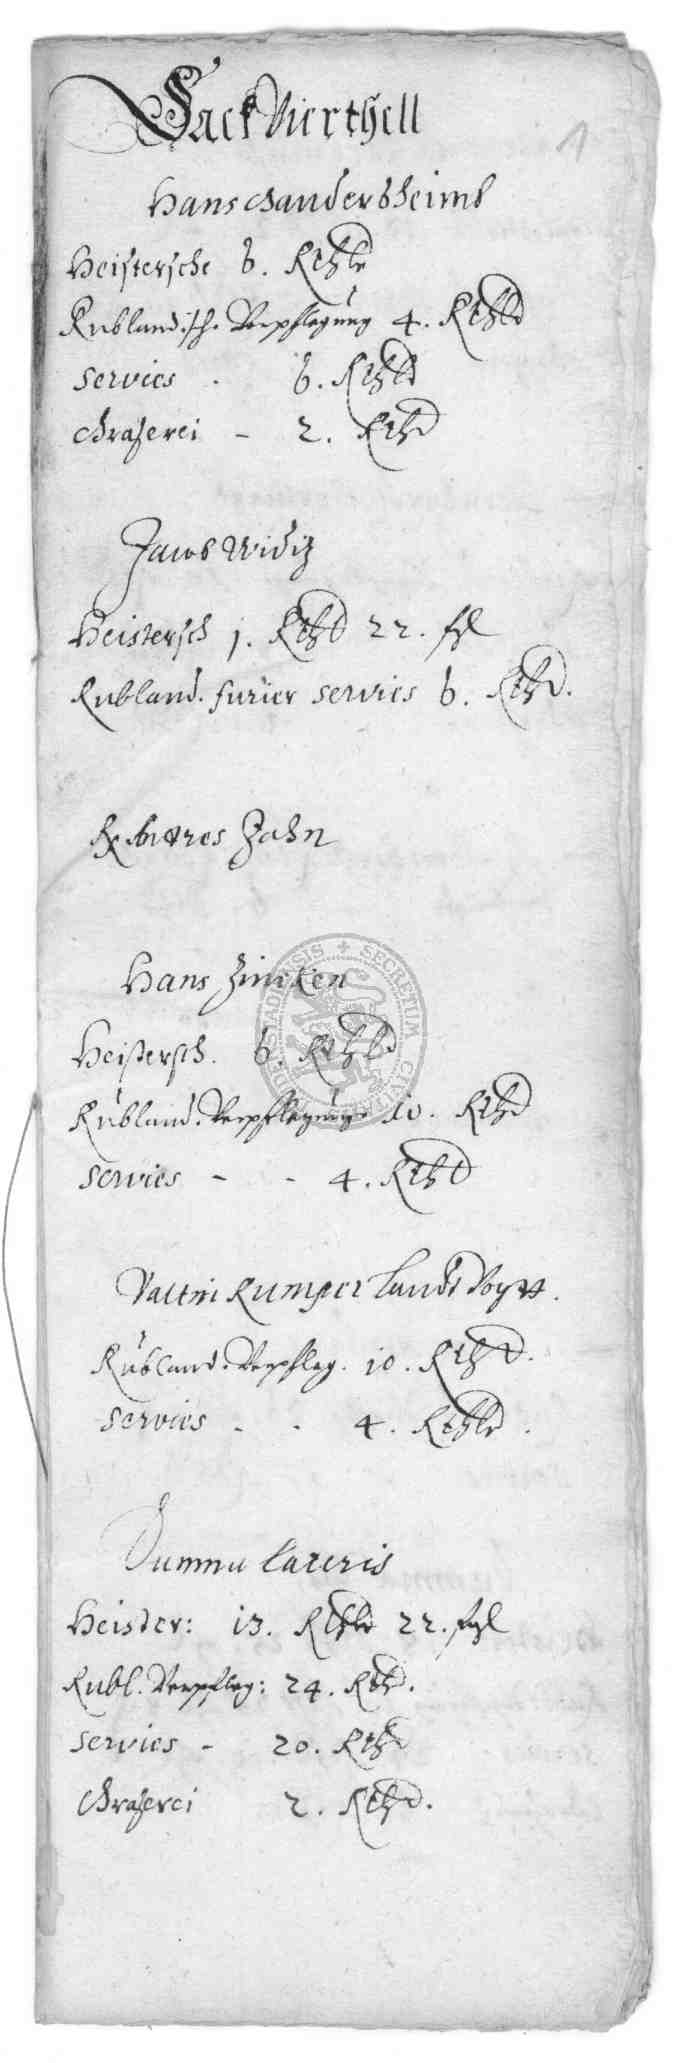 Sack Vierthell
1
Hans Gandersheimb
Heistersche 6. Rthlr
Rubland.sch. Verpflegung 4. Rthlr
Servies - 6. Rthlr
Graserei - 2. Rth
Jacob Widig
Heistersch 1. Rth 22. fgl
Rubland. furier servies 6. Rth.
Rx Andres Zahn
Hans Zincken
SECRETUM CIVI
Heistersch. 6. Rthlr
Rubland. Verpflegung 10. Rth
Servies - - 4. Rth
Valtin Rumper Landt Voytt.
Rubland. Verpfleg. 10. Rth.
Servies - - 4. Rthlr.
Summa lateris
Heister: 13. Rthlr 22. fgl
Rubl. Verpfleg: 24. Rth.
Servies - 20. Rth
Graserei 2. Rth.